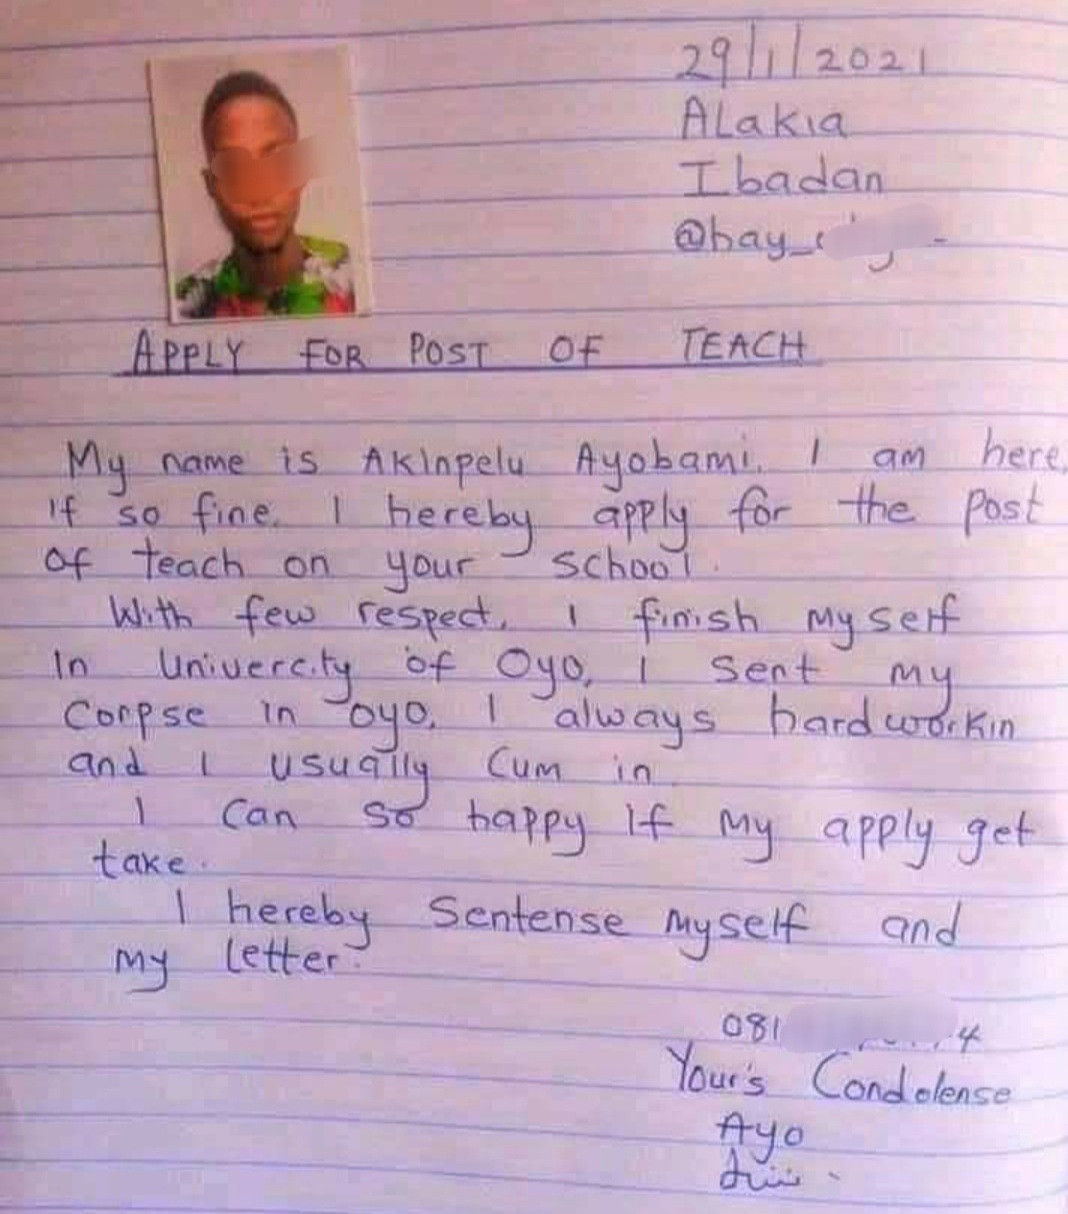 29/1/2021
Alakia
Ibadan
@bay_
APPLY FOR POST OF TEACH
My name is Akinpelu Ayobami. I am here,
if so fine. I hereby apply for the post
of teach on your school.
With few respect, I finish myself
In Univercity of Oyo, I sent my
corpse in oyo. I always hardworkin
and I usually Cum in
I can so happy if my apply get
take.
I hereby Sentense myself and
my letter.
081 4
Your's Condolense
Ayo